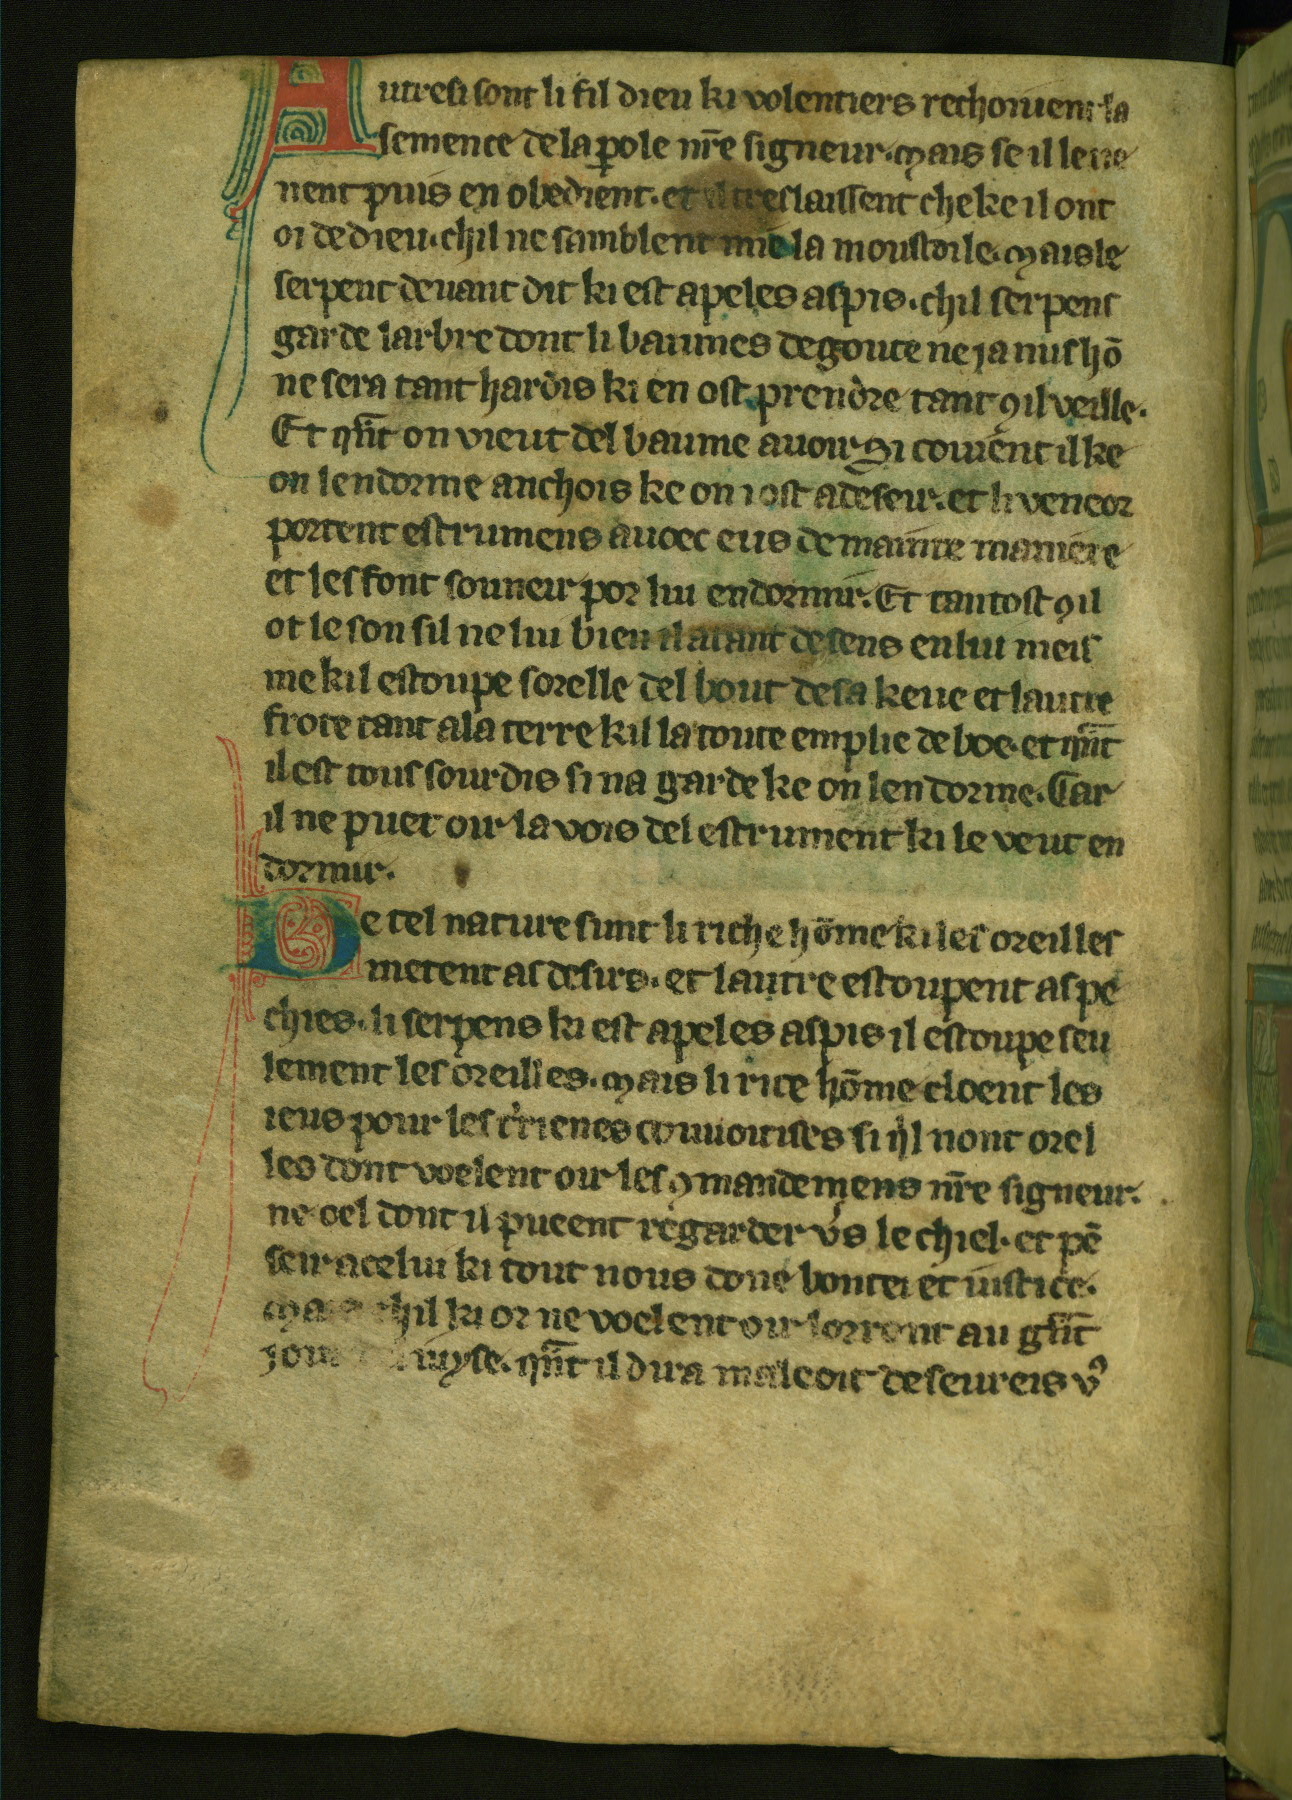 Autresi sont li fil dieu ki volentiers rechoiuent la
semence de la ꝑole nr̄e signeur. mais se il le
nent puis en obedient. et il treslaissent che ke il ont
oi de dieu. chil ne samblent mie la moustoile. mais le
serpent deuant dit ki est apeles aspis. chil serpent
garde larbre dont li baumes degoute ne ja nus hō
ne sera tant hardis ki en ost prendre tant ꝯil veille.
Et qn̄t on vieut del baume auoir. Si couiēnt il ke
on lendorme anchois ke on i ost adeseir. et li veneor
portent estrumens auoec eus de mainte maniere
et les font souneir por lui endormir. Et tantost ꝯil
ot le son sil ne lui bien il a tant de sens en lui meis
me kil estoupe sorelle del bout de sa keue et lautre
frote tant a la terre kil la toute emplie de boe. et qn̄t
il est tous sourdis si na garde ke on lendorme. Car
il ne puet oir la vois del estrument ki le veut en
dormir.
De tel nature sunt li riche hōme ki les oreilles
metent as desirs. et lautre estoupent as pe
chies. li serpens ki est apeles aspis il estoupe seu
lement les oreilles. mais li rice hōme cloent les
ieus pour les t'rienes couuoitises si qⁱl nont orel
les dont voelent oir les ꝯmandemens nr̄e signeur.
ne oel dont il pueent regarder v's le chiel. et pē
seir a celui ki tout nous done bontei et iustice.
chil ki or ne voelent oir lorront au gn̄t
iour iuyse. qn̄t il dira maleoit deseureis vꝰ